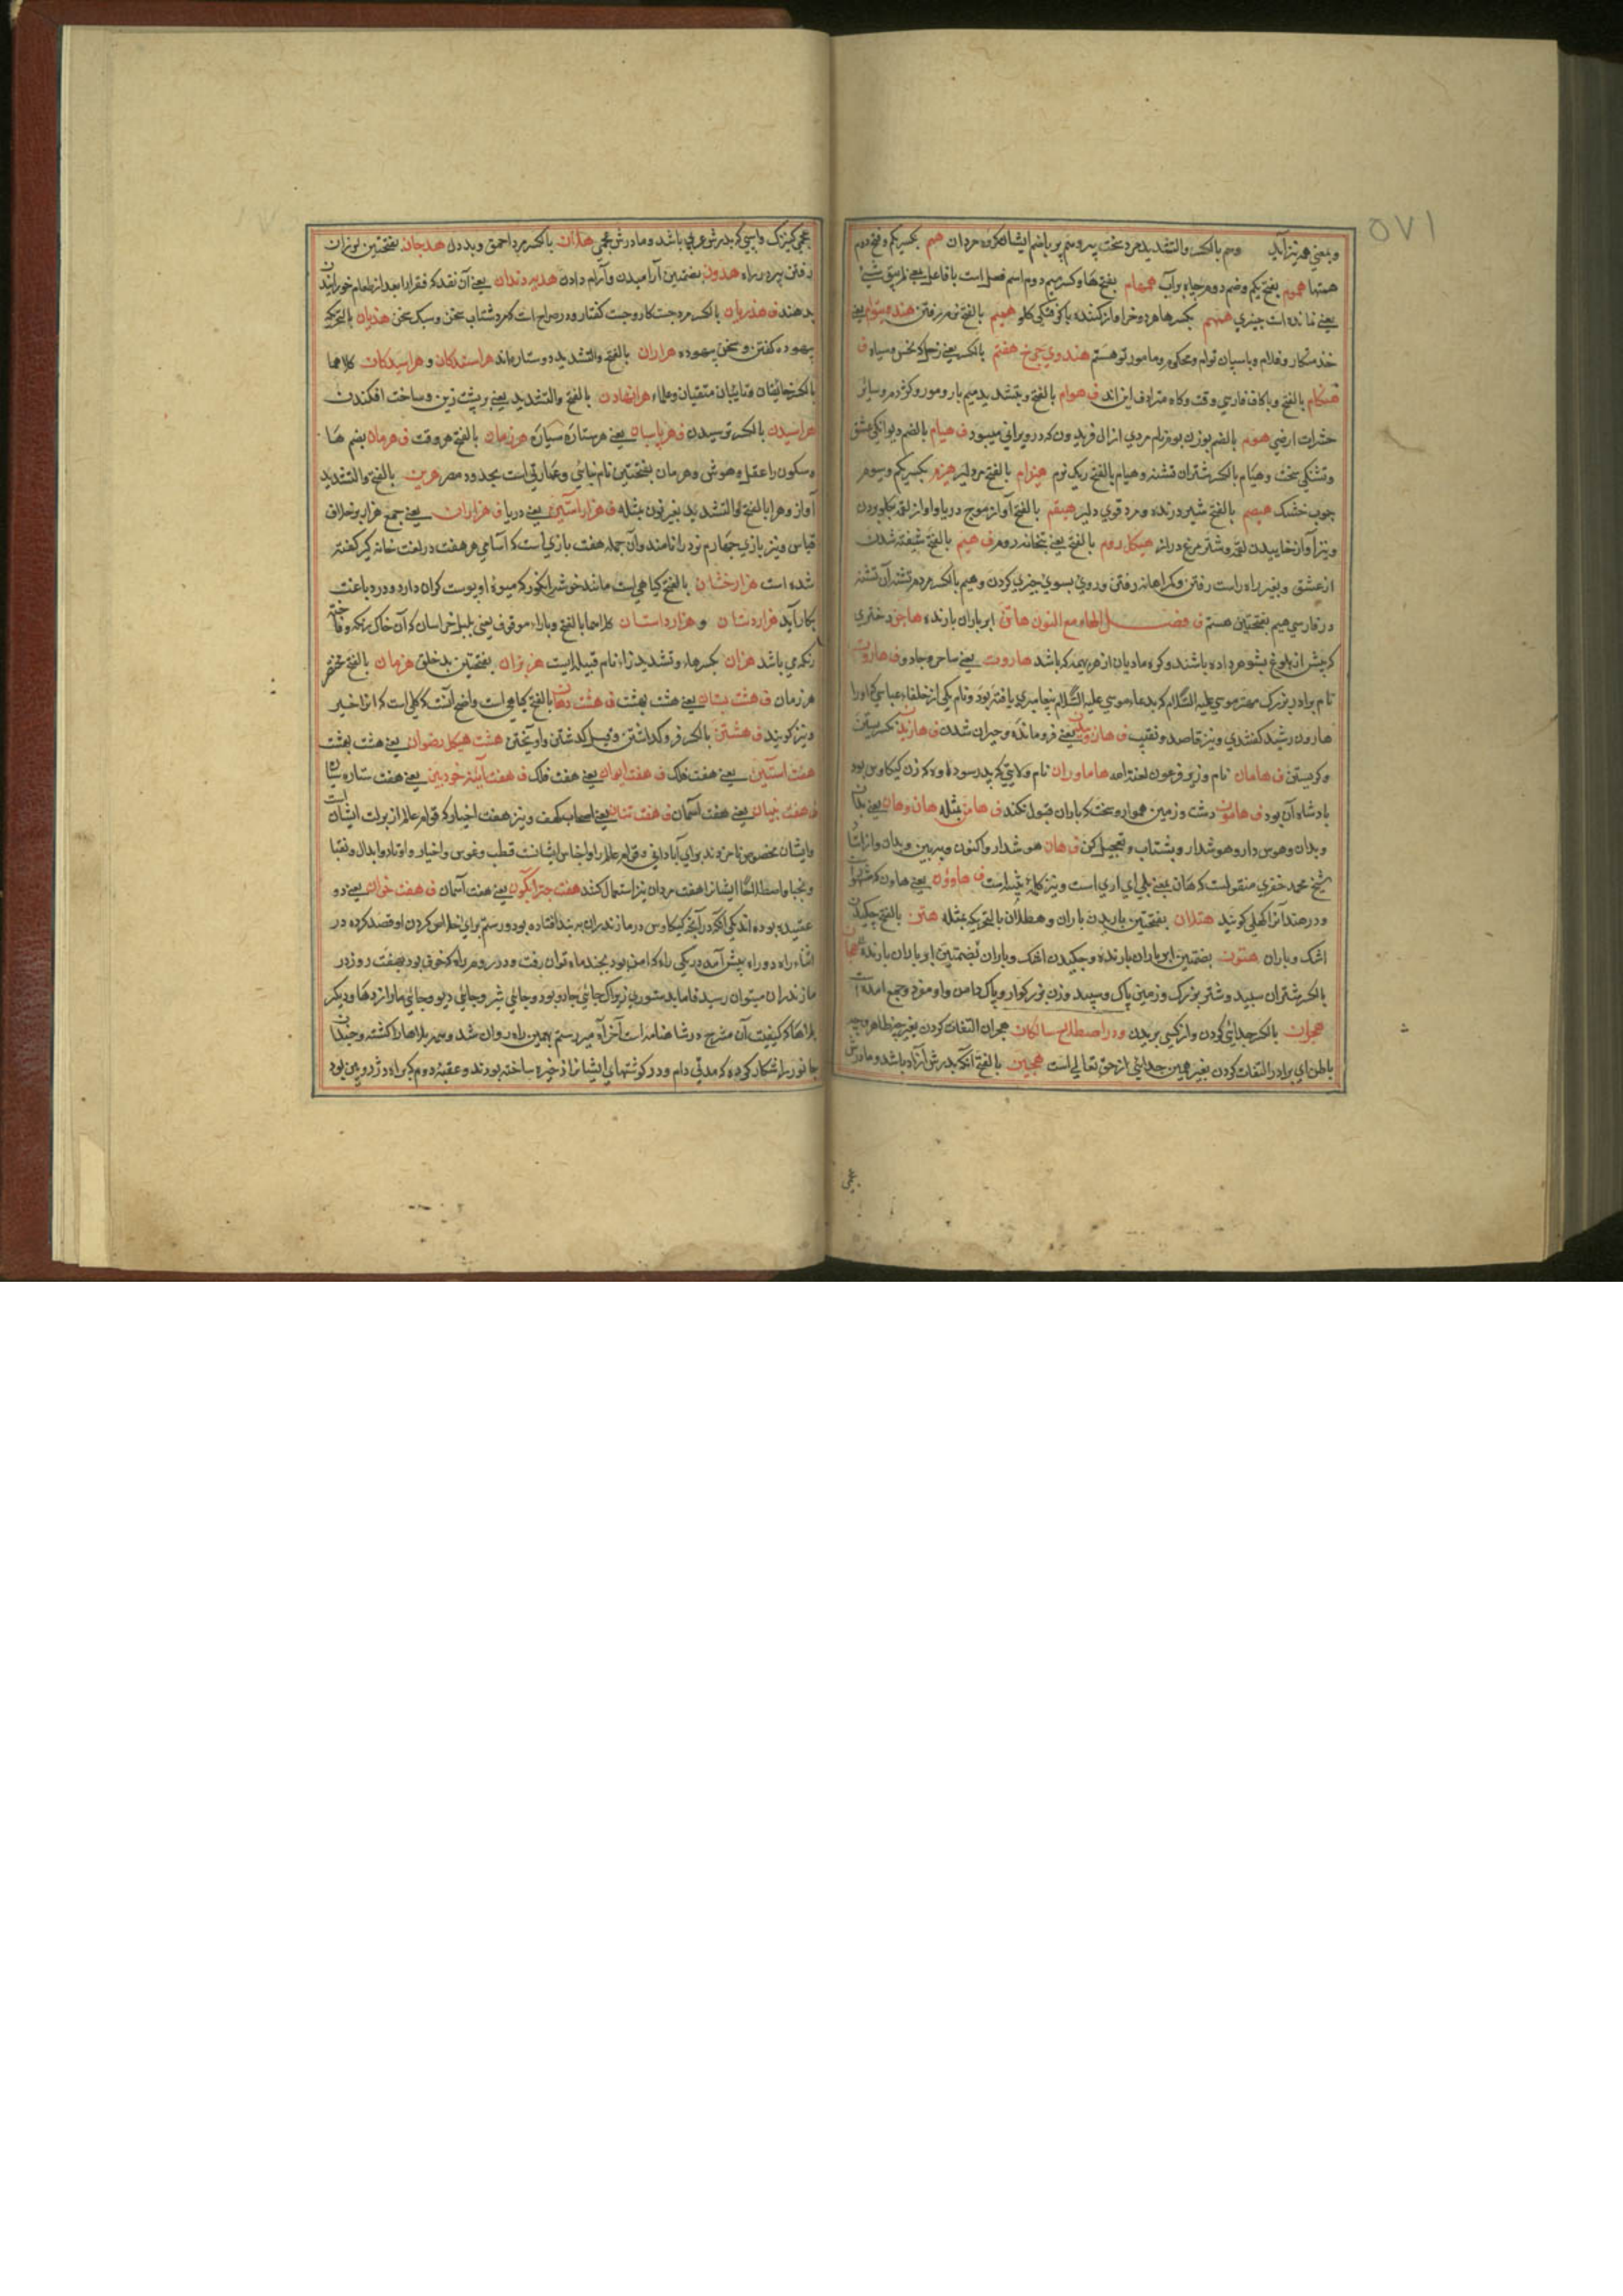 ۵۷۱
و بمعني هم نیز آید وهم بالکسر والتشدید مرد سخت پیر وهم پر باضم ایشان کروه مردان هم بکسر یکم و فتح دوم
همتها هموم بفتح یکم و ضم دوم چاه پر آب همهام بفتح ها و کسر میم دوم اسم فعل است
یعنے نمانده است چیزي بکسر هر دو خر آواز کننده بالفتح نرم رفتن یعنے
خدمتکار و غلام و پاسبان توام و محکوم و مامور تو هستم هندوي چرخ هفتم بالکسر یعنے زحل که نحس و سیاه ف
هنکام بالفتح و با کاف فارسي وقت و کاه مترادف این اند ف هوام بالفتح و بتشدید میم مار و مور و کژدم و سائر
حشرات ارضي هوم بالضم بوزن بوم نام مردي از آل فریدون که در ویراني میبود ف هیام بالضم دیوانکي عشق
و تشنکي سخت و هیام بالکسر شتران تشنه و هیام بالفتح ریک نرم هیزم بکسر یکم و سوم
چوب خشک هیصم بالفتح شیر درنده و مرد قوي دلیر هیقم بالفتح آواز موج دریا و آواز لقمه بکلو بردن
و نیز آواز خاییدن لقمه و شتر مرغ دراز هیکل روم بالفتح یعنے بتخانه روم ف هیم بالفتح شیفته شدن
از عشق و بغیر راه راست رفتن و کمراهانه رفتن و روي بسوي چیزي کردن و هیم بالکسر مردم تشنه
در فارسي هیم بفتحتین هستم ف فصل الهاء مع النون هاتن ابر باران بارنده هاجن دختري
که پیش از بلوغ بشوهر داده باشند هاروت یعنے ساحر و جادو ف هارون
نام برادر بزرک مهتر موسي علیه السلام که بدعاء موسي علیه السلام پیغامبري یافته بود و نام یکي از خلفاء عباسي که او را
هارون رشید کفتندي و نیز قاصد و نقیب ف یعنے فرومانده و حیران شدن ف
و کریستن ف هامان نام وزیر فرعون لعنة الله هاماوران نام ولایتي که پدر سودابه که زن کیکاوس بود
پادشاه آن بود ف هامون دشت و زمین هموار و سخت که باران قبول نکند ف هامن بمثله هان و هان یعنے بدان
و بدان و هوس دار و هوشدار و بشتاب و تعجیل کن ف هان هوشدار و اکنون و ببین و بدان
شیخ محمد خضري منقولست که هان بمعنے بلي اي آري است و نیز کلمهٔ تنبیه است ف هاوون یعنے هاون که
و در هند آنرا اکهلي کویند هتلان بفتحتین باریدن باران و هطلان بالتحریک بمثله هتن بالفتح چکیدن
اشک و باران هتون بضمتین ابر باران بارنده و چکیدن اشک و باران بضمتین ابر باران بارنده هجان
بالکسر شتران سپید و شتر بزرک و زمین پاک و سپید و زن بزرکوار و پاک دامن و او مفرد و جمع آمده است
هجران بالکسر جدائي کردن و از کسي بریدن و در اصطلاح سالکان هجران التفات کردن بغیر
باطن اي برادر التفات کردن بغیر همین جدائي از حق تعالي است هجین بالفتح آنکه پدرش آزاد باشد و مادرش
عجمي کنیزک و اسپي که پدرش عربي باشد و مادرش عجمي هدان بالکسر مرد احمق و بد دل هدجان بفتحتین لوزان
رفتن پیر در راه هدون بضمتین آرامیدن و آرام دادن هدیه دندان یعنے آن نقد که فقرا را بعد از طعام خورانیدن
بدهند ف هذریان بالکسر مرد چست کار و چست کفتار و در صراح است که مرد شتاب سخن و سبک سخن هذیان بالتحریک
بیهوده کفتن و سخن بیهوده هراران بالفتح والتشدید دو ستاره اند هراسندکان و هراسیدکان کلاهما
بالکسر خائفان و تائبان متقیان و علماء هرانهادن بالفتح والتشدید یعنے بر پشت زین و ساخت افکندن
هراسیدن بالکسر ترسیدن ف هرپاسبان یعنے هر ستاره سیاره هرزمان بالفتح هر وقت ف هرمان بضم ها
و سکون را عقل و هوش و هرمان بفتحتین نام بنائي و عمارتي است بحدود مصر هرین بالفتح والتشدید
آواز و هرا بالفتح والتشدید بغیر نون بمثله ف هزار آستین یعنے دریا ف هزاران یعنے جمع هزار بر خلاف
قیاس و نیز بازي چهارم نرد را نامند و آن جمله هفت بازي است که اسامي هر هفت در لغت خانه کیر کفته
شده است هزارخشان بالفتح کیاهي است مانند خوشه انکور که میوهٔ او پوست کران دارد و در دباغت
بکار آید هزاردستان و هزارداستان کلاهما بالفتح و با راء موقوف یعنے بلبل خراسان
هزان بکسر ها و تشدید زاء نام قبیله ایست هزبران بفتحتین بد خلق هزمان بالفتح مختصر
هر زمان ف هشت بستان یعنے هشت بهشت ف هشت دهان بالفتح کیاهي است
و نیز کویند ف هشتن بالکسر فروکذاشتن و یله کذشتن و آویختن هشت هیکل رضوان یعنے هشت بهشت
هفت آستین یعنے هفت فلک ف هفت ایوان یعنے هفت فلک ف هفت آینه خودبین یعنے هفت ستاره سیاره
ف هفت بنیان یعنے هفت آسمان ف هفت تنان یعنے اصحاب کهف و نیز هفت اخیار که قوام عالم از برکت ایشان است
و ایشان مخصوص نامزدند براي آبادانی و قوام عالم قطب و غوث و اخیار و اوتاد و ابدال و نقبا
و نجبا و اصطلاحًا ایشان را هفت مردان نیز استعمال کنند هفت چتر آبکون یعنے هفت آسمان ف هفت خوان یعنے دو
عقبه بوده اند یکي آنکه در آنچه کیکاوس در مازندران به بند افتاده بود و رستم براي خلاص کردن او قصد کرده در
اثناء راه دو راه پیش آمد در یکي راه که امن بود بچند ماه توان رفت و در دوم راه که خوف بود بهفت روز در
مازندران میتوان رسید جائي جادو بود و جائي شیر و جائي دیو و جائي مار اژدها و دیکر
بلاها که کیفیت آن مشرح در شاهنامه است آخر الامر رستم بهمین راه روان شد و همه بلاها را کشته و چندان
جانور را شکار کرده که مدتي دام و دد کوشتهاي ایشان را ذخیره ساخته بودند و عقبه دوم که راه دژ رویین بود
عجمي